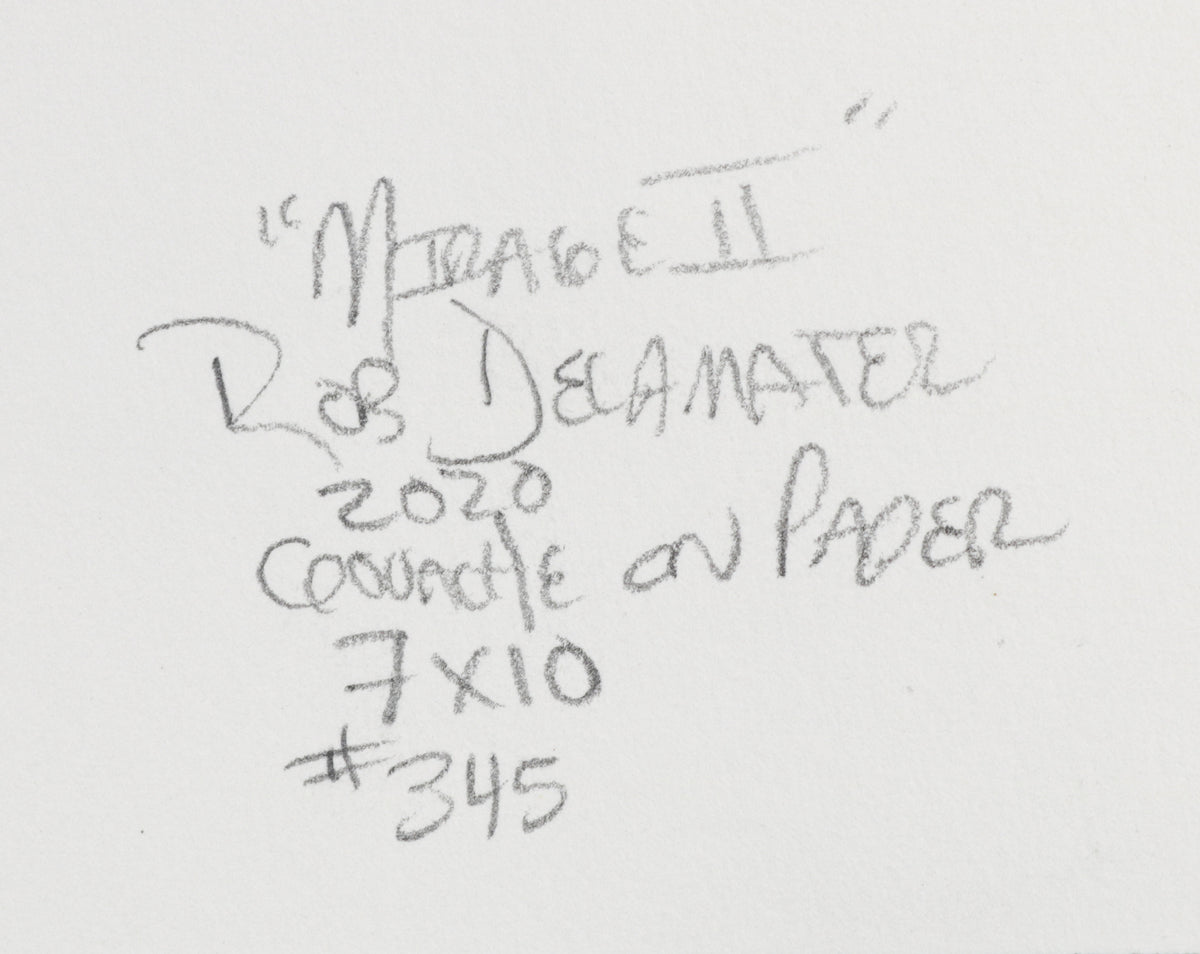 "MIRAGE II"
ROB DELAMATER
2020
GOUACHE ON PAPER
7X10
#345